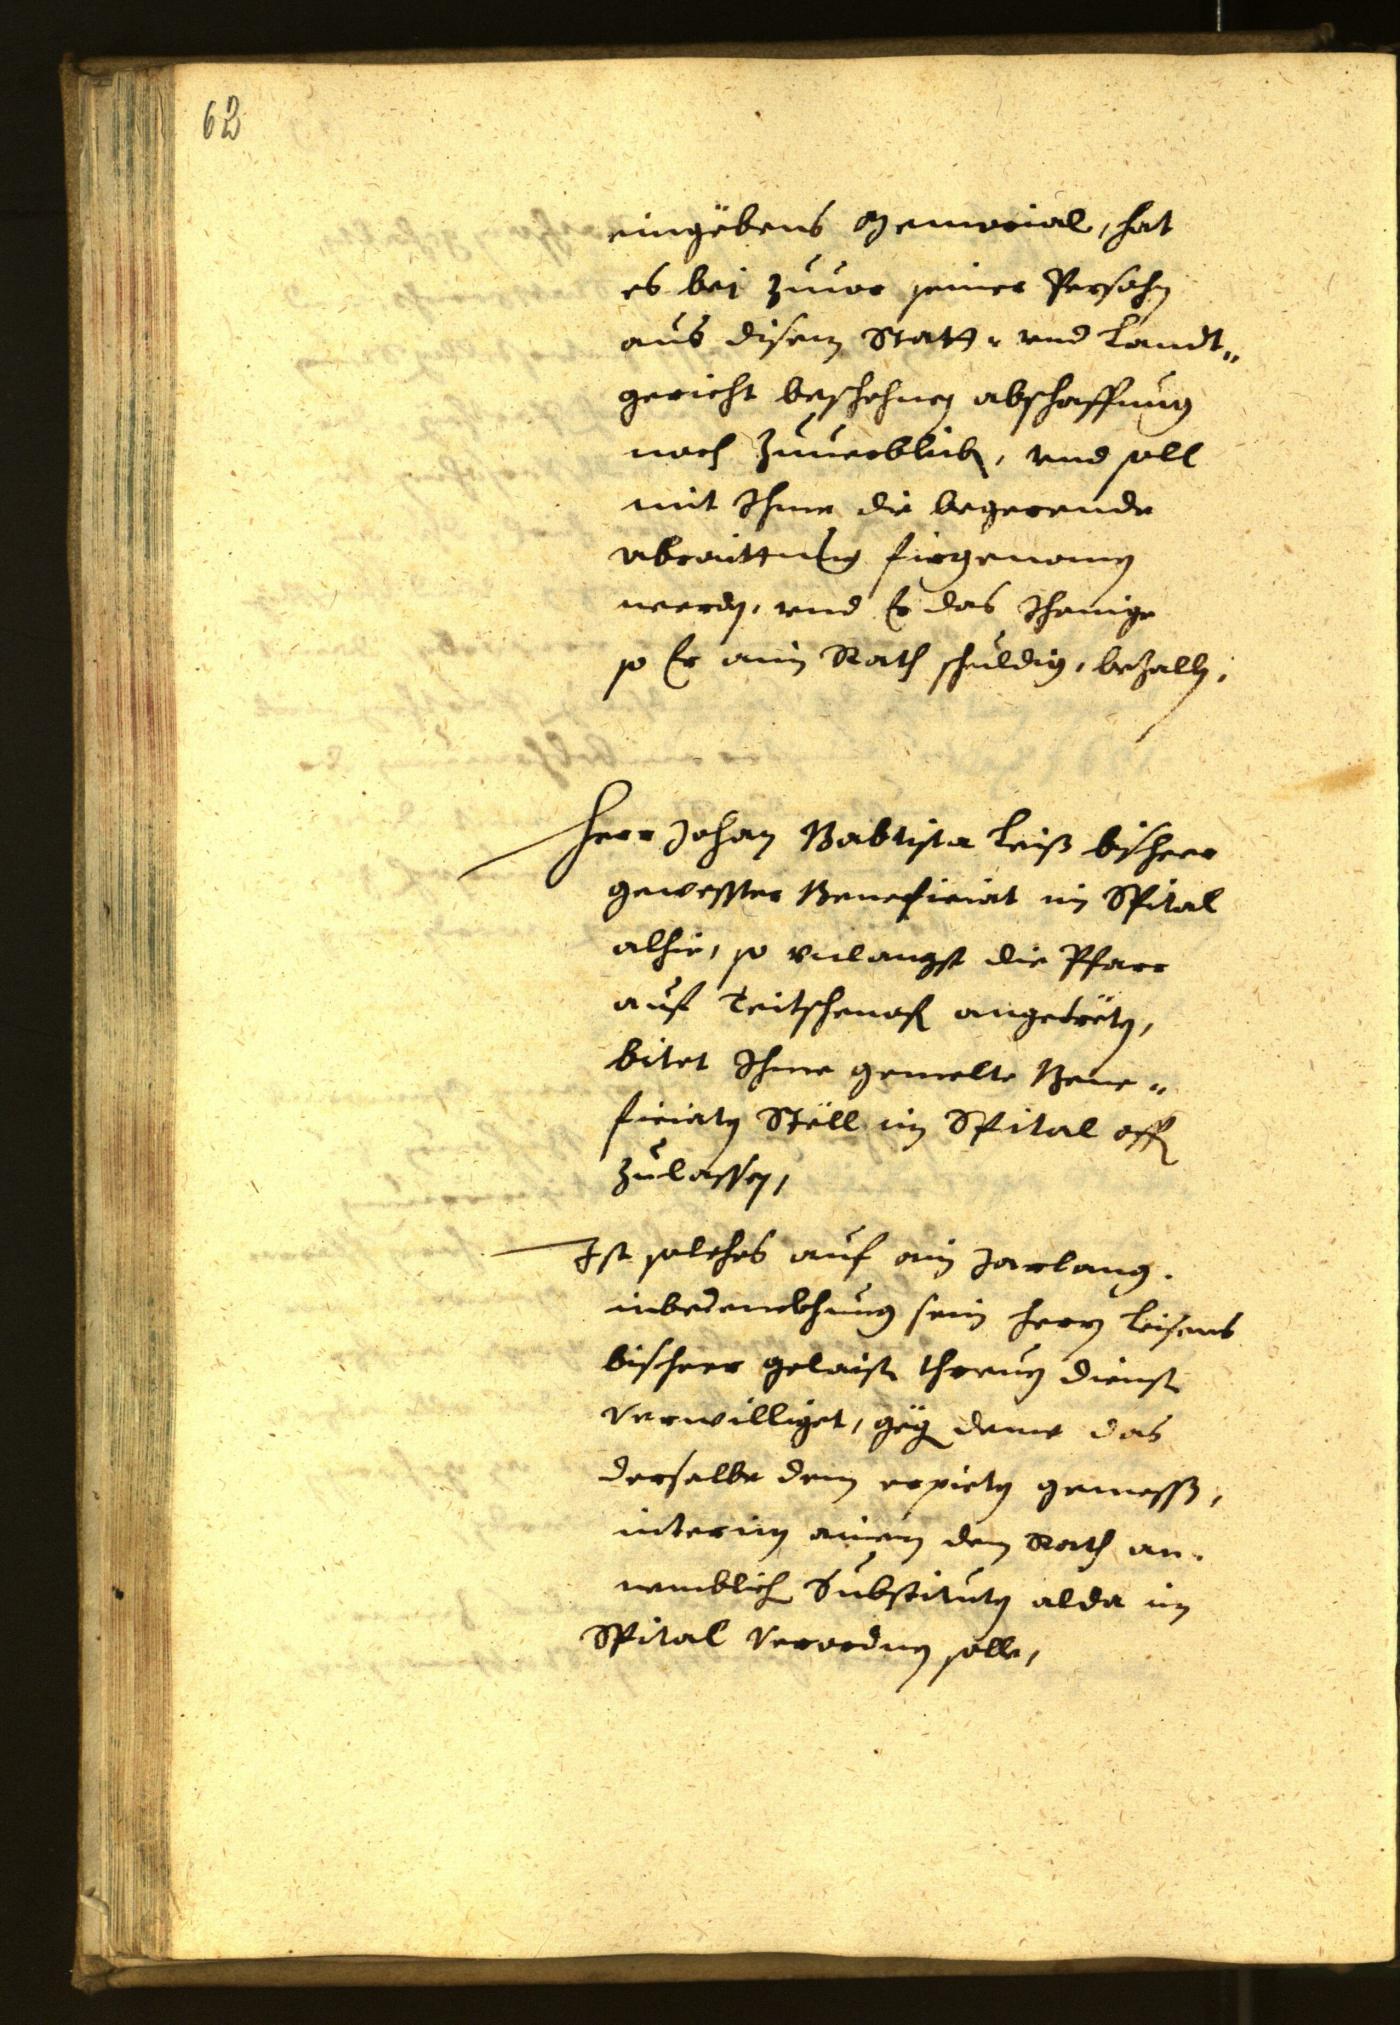 62
eingëbens Memorial, hat
es bei zuuor seiner Persohn
aus disem Statt- vnd Landt„
gericht beschehnen abschaffung
noch zuuerbleib, vnd soll
mit Ihme die begerende
abraittung firgenomen
werden, vnd Er das Ihenige
so Er aim Rath schuldig, bezallen,
Herr Johan Babtista Leiß bisheer
gewesster Beneficiat im Spital
alhie, so vnlangst die Pfarr
auf Teitschenofen angetrëten,
bitet Ihme gemelte Bene„
ficiaten Stëll im Spital offen
zulassen,
Ist solches auf ain Jarlang.
inbedenckhung sein Herrn Leisens
bisheer gelaisten threuen dienst
Verwilliget, gëgen deme das
derselbe dem erpieten gemeß,
interim ainem dem Rath an-
nemblich Substituten alda im
Spital Verordnen solle,